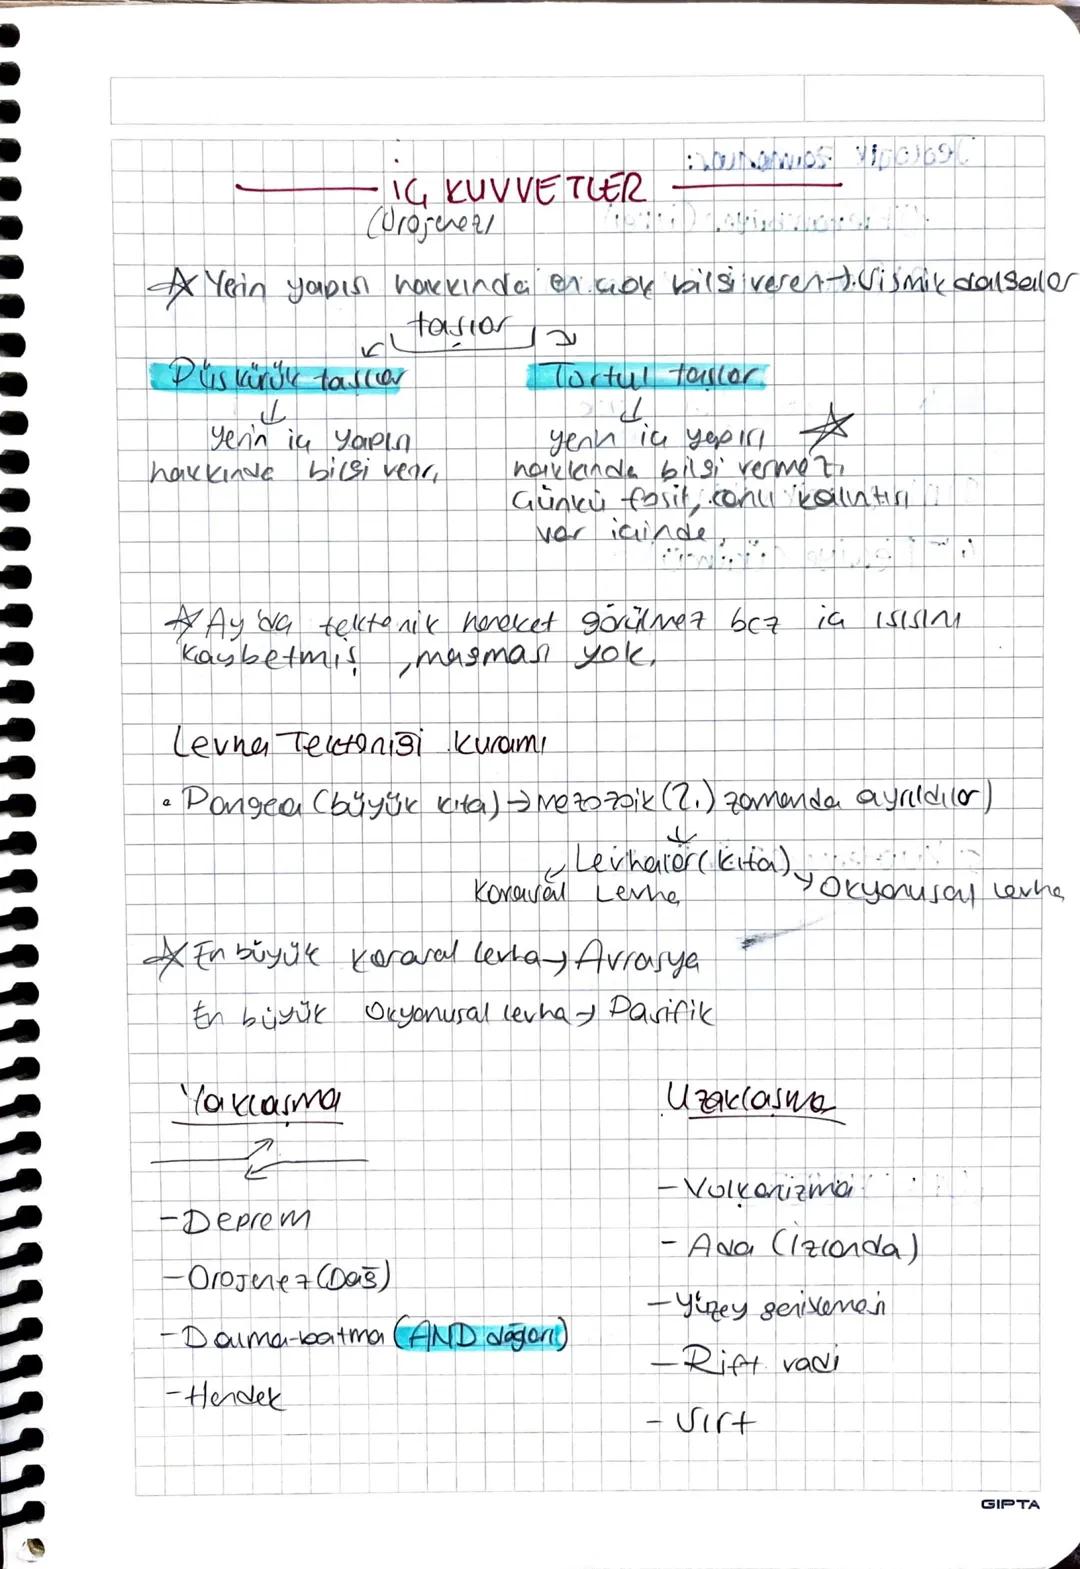 İÇ KUVVETLER
(Orojenez)
☆ Yerin yapısı hakkında en çok bilgi veren → Sismik dalgalar
taşlar
Püskürük taşlar Tortul taşlar
↓ ↓
yerin iç yapısı yerin iç yapısı ☆
hakkında bilgi verir, hakkında bilgi vermez,
Çünkü fosil, canlı kalıntısı
var içinde,
☆ Ay'da tektonik hareket görülmez bcz iç ısısını
kaybetmiş, magması yok.
Levha Tektoniği kuramı
• Pangea (büyük kıta) → Mezozoik (2.) zamanda ayrıldılar)
↓
Levhalar (kıta)
Karasal Levha Okyanusal Levha
☆ En büyük karasal levha → Avrasya
En büyük Okyanusal levha → Pasifik
Yaklaşma Uzaklaşma
- Deprem
- Orojenez (Dağ)
- Dalma-batma (AND dağları)
- Hendek
- Volkanizma
- Ada (İzlanda)
- Yüzey genişlemesi
- Rift vadi
- Sırt
GIPTA